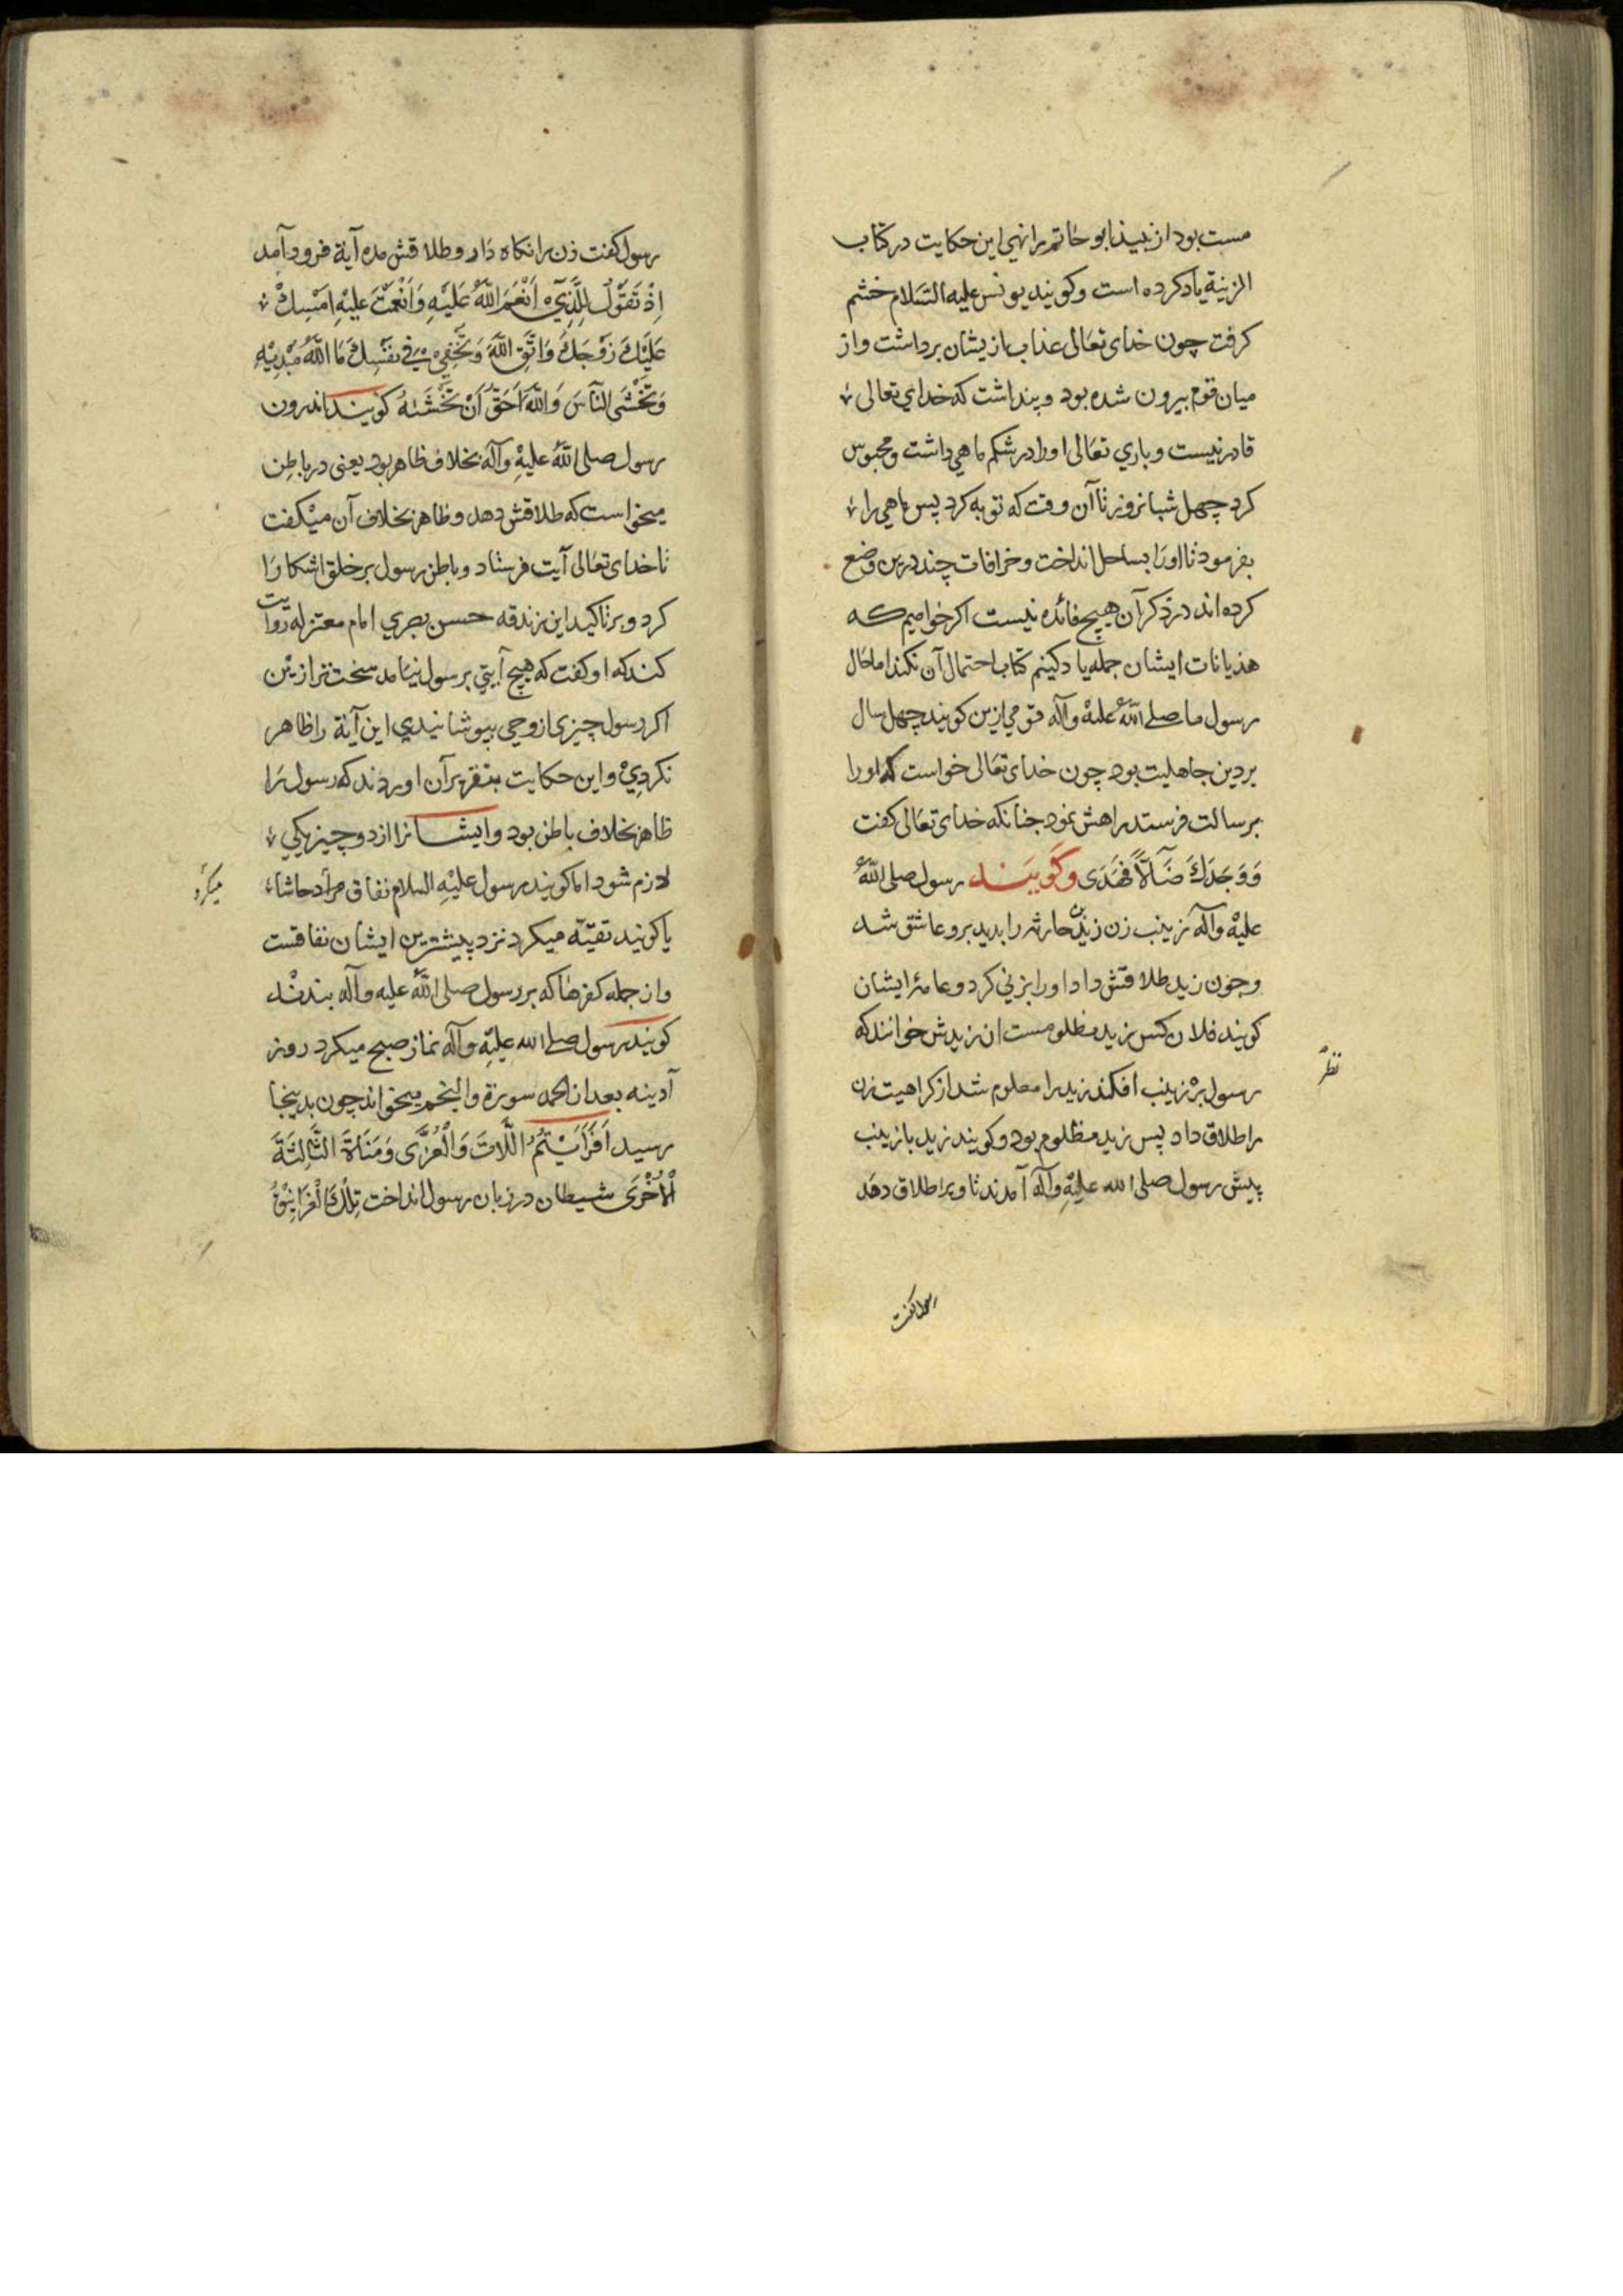 مست بود از نبیذ ابو حاتم رانهی این حکایت در کتاب
الزینة یاد کرده است وکویند یونس علیه السلام خشم
کرفت چون خدای تعالی عذاب از یشان برداشت واز
میان قوم بیرون شده بود وپنداشت که خدای تعالی
قادر نیست وباری تعالی اورا در شکم ماهی داشت ومحبوس
کرد چهل شبانروز تا آن وقت که توبه کرد پس ماهی را
بفرمود تا اورا بساحل انداخت وخرافات چند درین وضع
کرده اند در ذکر آن هیچ فائده نیست اکر خواهیم که
هذیانات ایشان جمله یاد کنیم کتاب احتمال آن نکند اما حال
رسول ما صلی الله علیه وآله قومی ازین کویند چهل سال
بر دین جاهلیت بود چون خدای تعالی خواست که اورا
برسالت فرستد راهش نمود جنانکه خدای تعالی کفت
وَوَجَدَكَ ضَآلاًّ فَهَدَى وکویند رسول صلی الله
علیه وآله زینب زن زید بن حارثه را بدید برو عاشق شد
وجون زید طلاقش داد اورا بزنی کرد وعامۀ ایشان
کویند فلان کس زید مظلومست ان زیدش خوانند که
رسول بر زینب افکند زید را معلوم شد از کراهیت زن
نظر
را طلاق داد پس زید مظلوم بود وکویند زید با زینب
پیش رسول صلی الله علیه وآله آمدند تا ویرا طلاق دهد
رسول کفت
رسول کفت زن را نکاه دار وطلاقش مده آیة فرود آمد
اِذْ تَقُولُ لِلَّذِيٓ اَنْعَمَ اللّٰهُ عَلَيْهِ وَاَنْعَمْتَ عَلَيْهِ اَمْسِكْ
عَلَيْكَ زَوْجَكَ وَاتَّقِ اللّٰهَ وَتُخْفِي فِي نَفْسِكَ مَا اللّٰهُ مُبْدِيْهِ
وَتَخْشَى النَّاسَ وَاللّٰهُ اَحَقُّ اَنْ تَخْشَهُ کویند اندرون
رسول صلی الله علیه وآله بخلاف ظاهر بود یعنی در باطن
میخواست که طلاقش دهد وظاهر بخلاف آن میکفت
تا خدای تعالی آیت فرستاد وباطن رسول بر خلق اشکارا
کرد وبر تاکید این زندقه حسن بصری امام معتزله روایت
کند که او کفت که هیچ آیتی بر رسول نیامد سخت تر ازین
اکر رسول چیزی از وحی بپوشانیدی این آیة را ظاهر
نکردی واین حکایت آن اوردند که رسول را
ظاهر بخلاف باطن بود وایشانرا از دو چیز یکی
لازم شود اما کویند رسول علیه السلام نفاق حاشا
میکرد
یا کویند تقیّه میکرد نزد پیشترین ایشان نفاقست
واز جمله کفرها که بر رسول صلی الله علیه وآله بندند
کویند رسول صلی الله علیه وآله نماز صبح میکرد روز
آدینه بعد از الحمد سورة والنجم میخواند چون بدینجا
رسید اَفَرَاَيْتُمُ اللَّاتَ وَالْعُزَّى وَمَنَاةَ الثَّالِثَةَ
الْاُخْرَى شیطان در زبان رسول انداخت تِلْكَ الْغَرَانِيْقُ